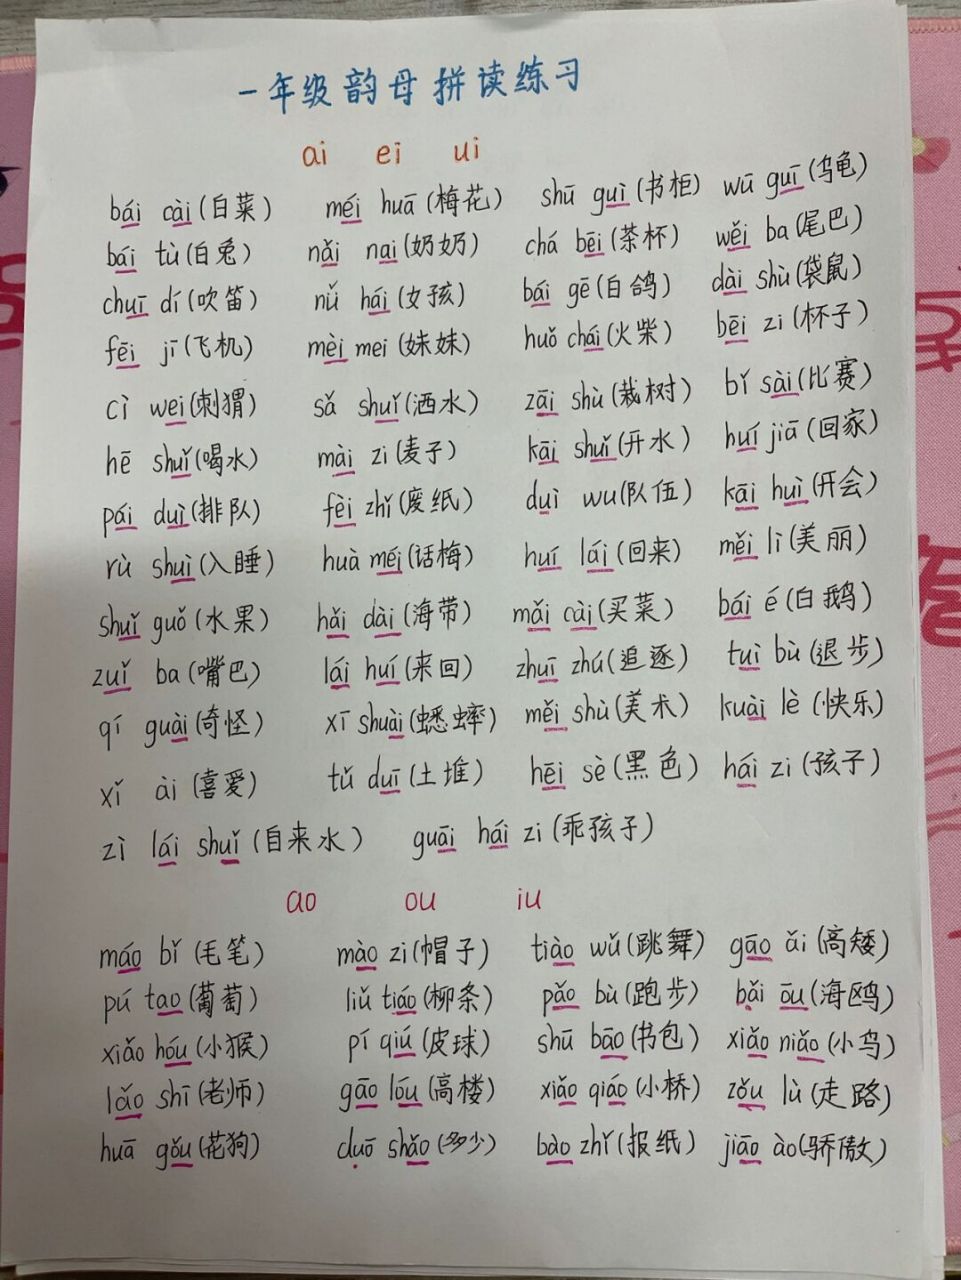 一年级韵母拼读练习
ai ei ui
bái cài(白菜) méi huā(梅花) shū guì(书柜) wū guī(乌龟)
bái tù(白兔) nǎi nai(奶奶) chá bēi(茶杯) wěi ba(尾巴)
chuī dí(吹笛) nǚ hái(女孩) bái gē(白鸽) dài shù(袋鼠)
fēi jī(飞机) mèi mei(妹妹) huǒ chái(火柴) bēi zi(杯子)
cì wei(刺猬) sǎ shuǐ(洒水) zāi shù(栽树) bǐ sài(比赛)
hē shuǐ(喝水) mài zi(麦子) kāi shuǐ(开水) huí jiā(回家)
pái duì(排队) fèi zhǐ(废纸) duì wu(队伍) kāi huì(开会)
rù shuì(入睡) huà méi(话梅) huí lái(回来) měi lì(美丽)
shuǐ guǒ(水果) hǎi dài(海带) mǎi cài(买菜) bái é(白鹅)
zuǐ ba(嘴巴) lái huí(来回) zhuī zhú(追逐) tuì bù(退步)
qí guài(奇怪) xī shuài(蟋蟀) měi shù(美术) kuài lè(快乐)
xǐ ài(喜爱) tǔ duī(土堆) hēi sè(黑色) hái zi(孩子)
zì lái shuǐ(自来水) guāi hái zi(乖孩子)
ao ou iu
máo bǐ(毛笔) mào zi(帽子) tiào wǔ(跳舞) gāo ǎi(高矮)
pú tao(葡萄) liǔ tiáo(柳条) pǎo bù(跑步) bǎi ōu(海鸥)
xiǎo hóu(小猴) pí qiú(皮球) shū bāo(书包) xiǎo niǎo(小鸟)
lǎo shī(老师) gāo lóu(高楼) xiǎo qiáo(小桥) zǒu lù(走路)
huā gǒu(花狗) duō shǎo(多少) bào zhǐ(报纸) jiāo ào(骄傲)